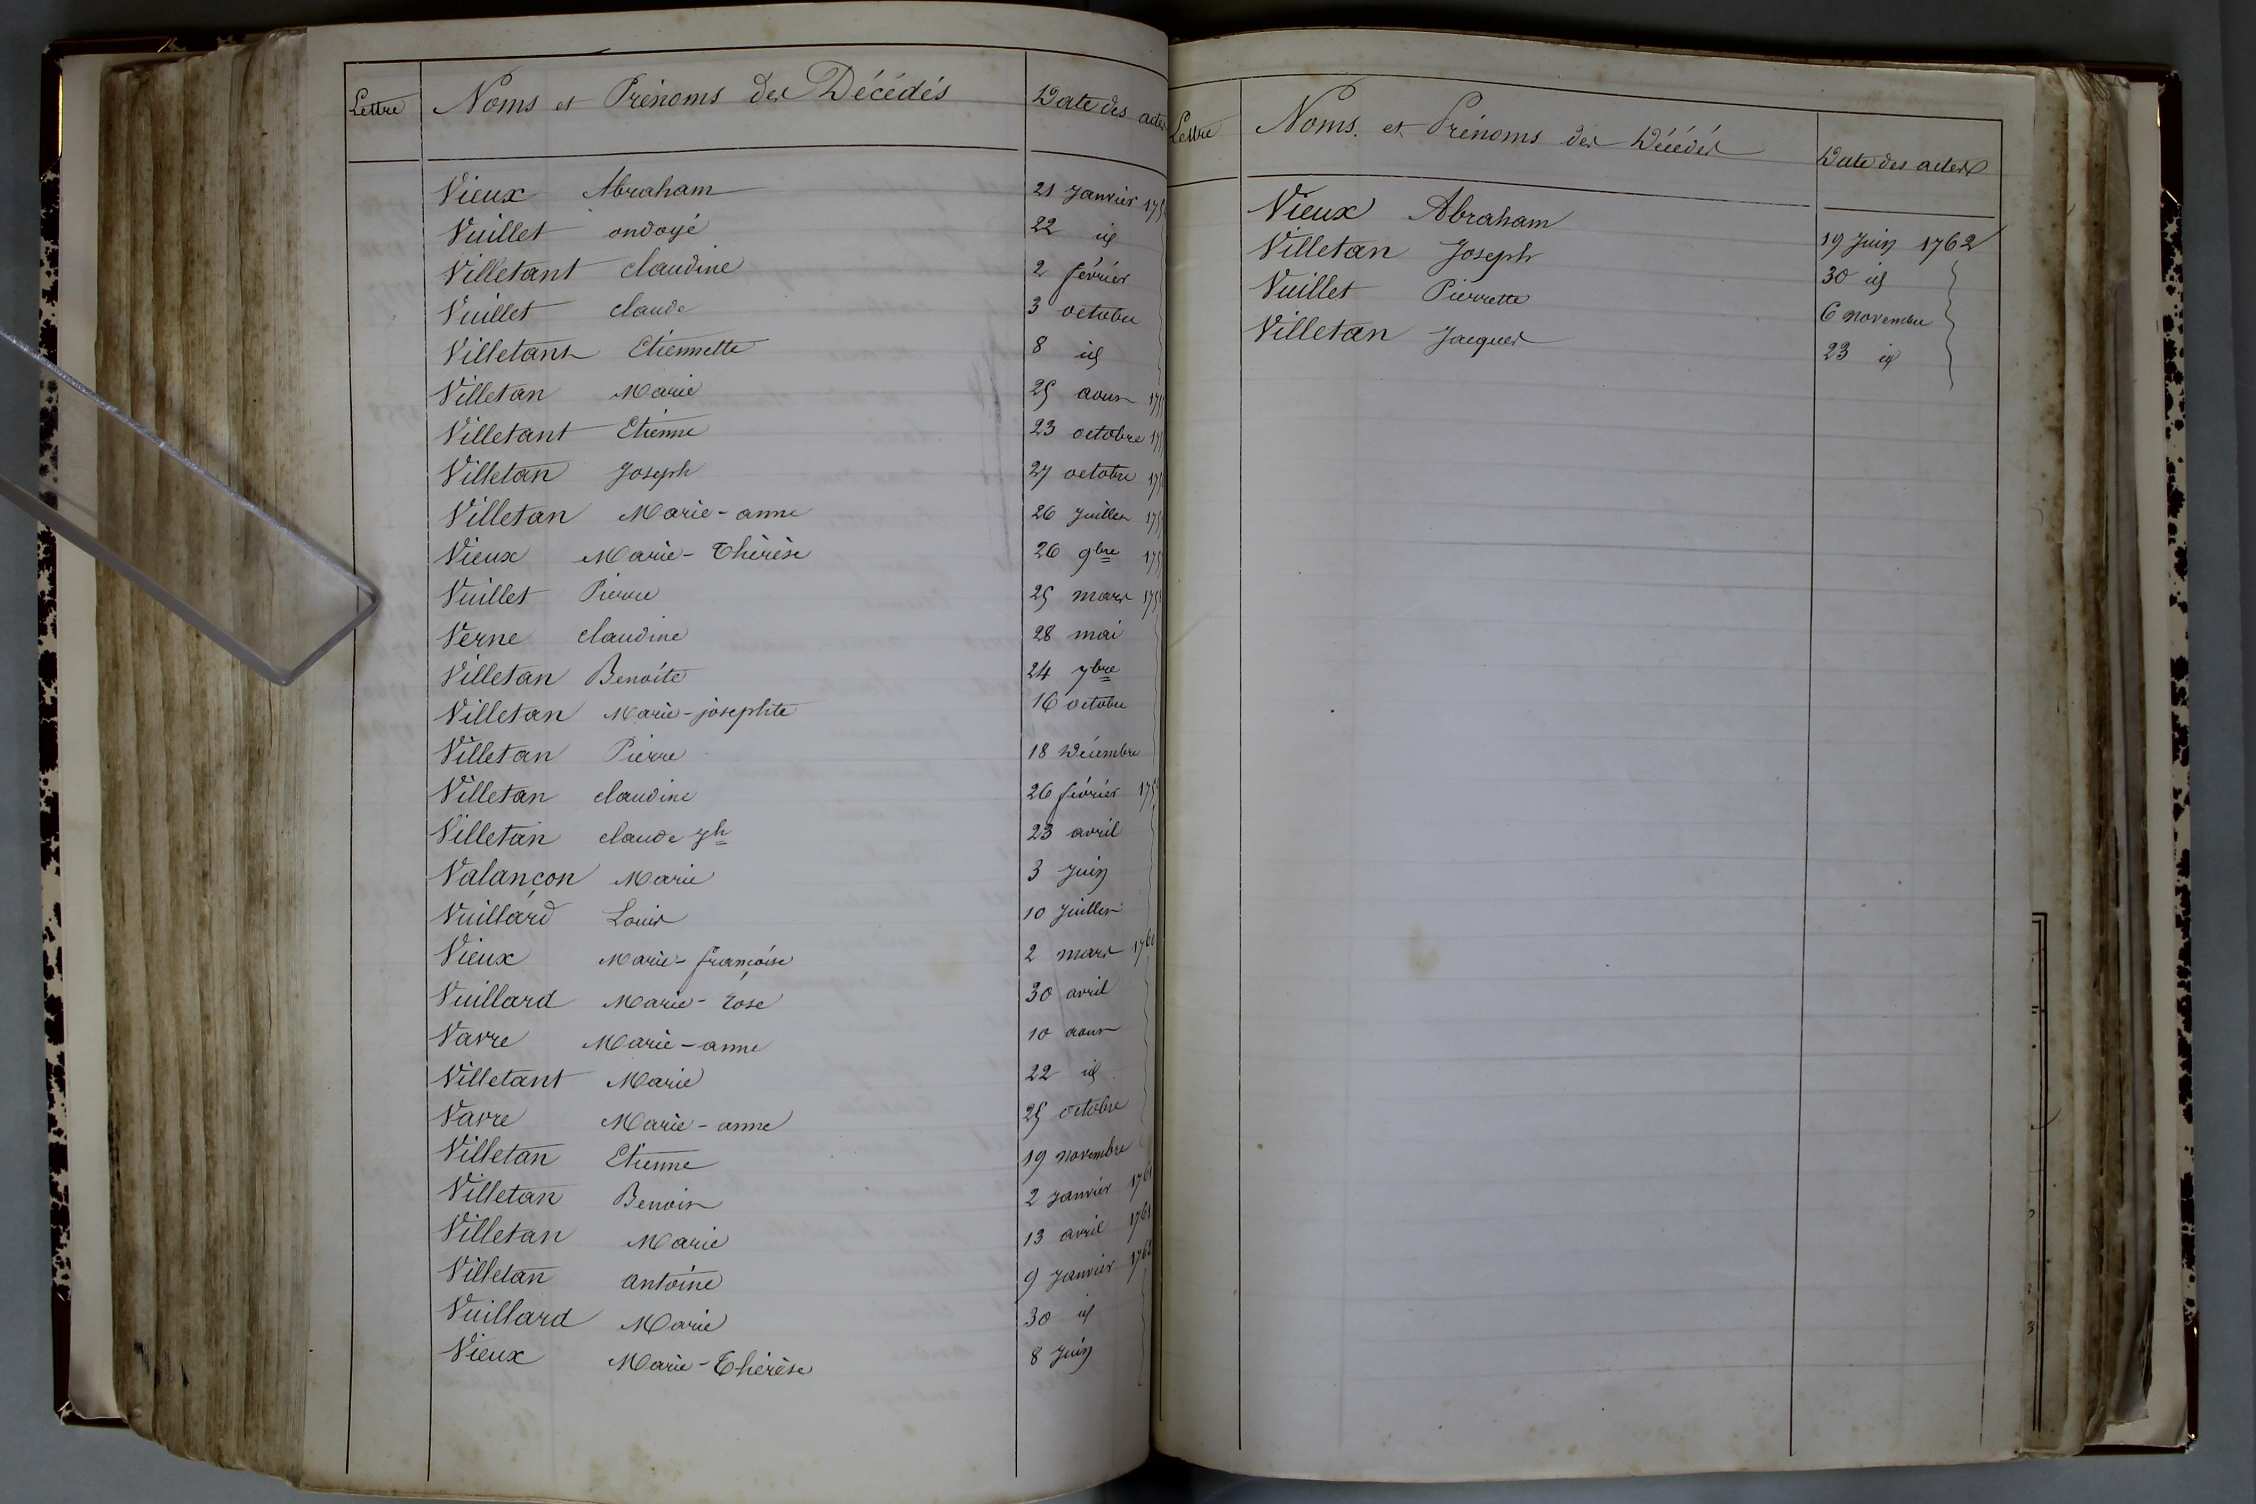 Lettre Noms et Prénoms des Décédés Date des actes
Vieux Abraham 21 Janvier
Vuillet ondoyé 22 id
Villetant claudine 2 février
Vuillet claude 3 octobre
Villetant Etiennette 8 id
Villetan Marie 25 aout
Villetant Etienne 23 octobre
Villetan Joseph 27 octobre
Villetan Marie-anne 26 Juillet
Vieux Marie-Thérèse 26 9bre
Vuillet Pierre 25 mars
Verne claudine 28 mai
Villetan Benoite 24 7bre
Villetan Marie-josephte 16 octobre
Villetan Pierre 18 Décembre
Villetan claudine 26 février
Villetan claude jh 23 avril
Valançon Marie 3 Juin
Vuillard Louis 10 Juillet
Vieux Marie-françoise 2 mars 1760
Vuillard Marie-rose 30 avril
Vavre Marie-anne 10 aout
Villetant Marie 22 id
Vavre Marie-anne 25 octobre
Villetan Etienne 19 novembre
Villetan Benoit 2 Janvier 1761
Villetan Marie 13 avril 1761
Villetan antoine 9 Janvier 1762
Vuillard Marie 30 id
Vieux Marie-Thérèse 8 Juin
Lettre Noms et Prénoms des Décédés Date des actes
Vieux Abraham 19 Juin 1762
Villetan Joseph 30 id
Vuillet Pierrette 6 novembre
Villetan Jacques 23 id